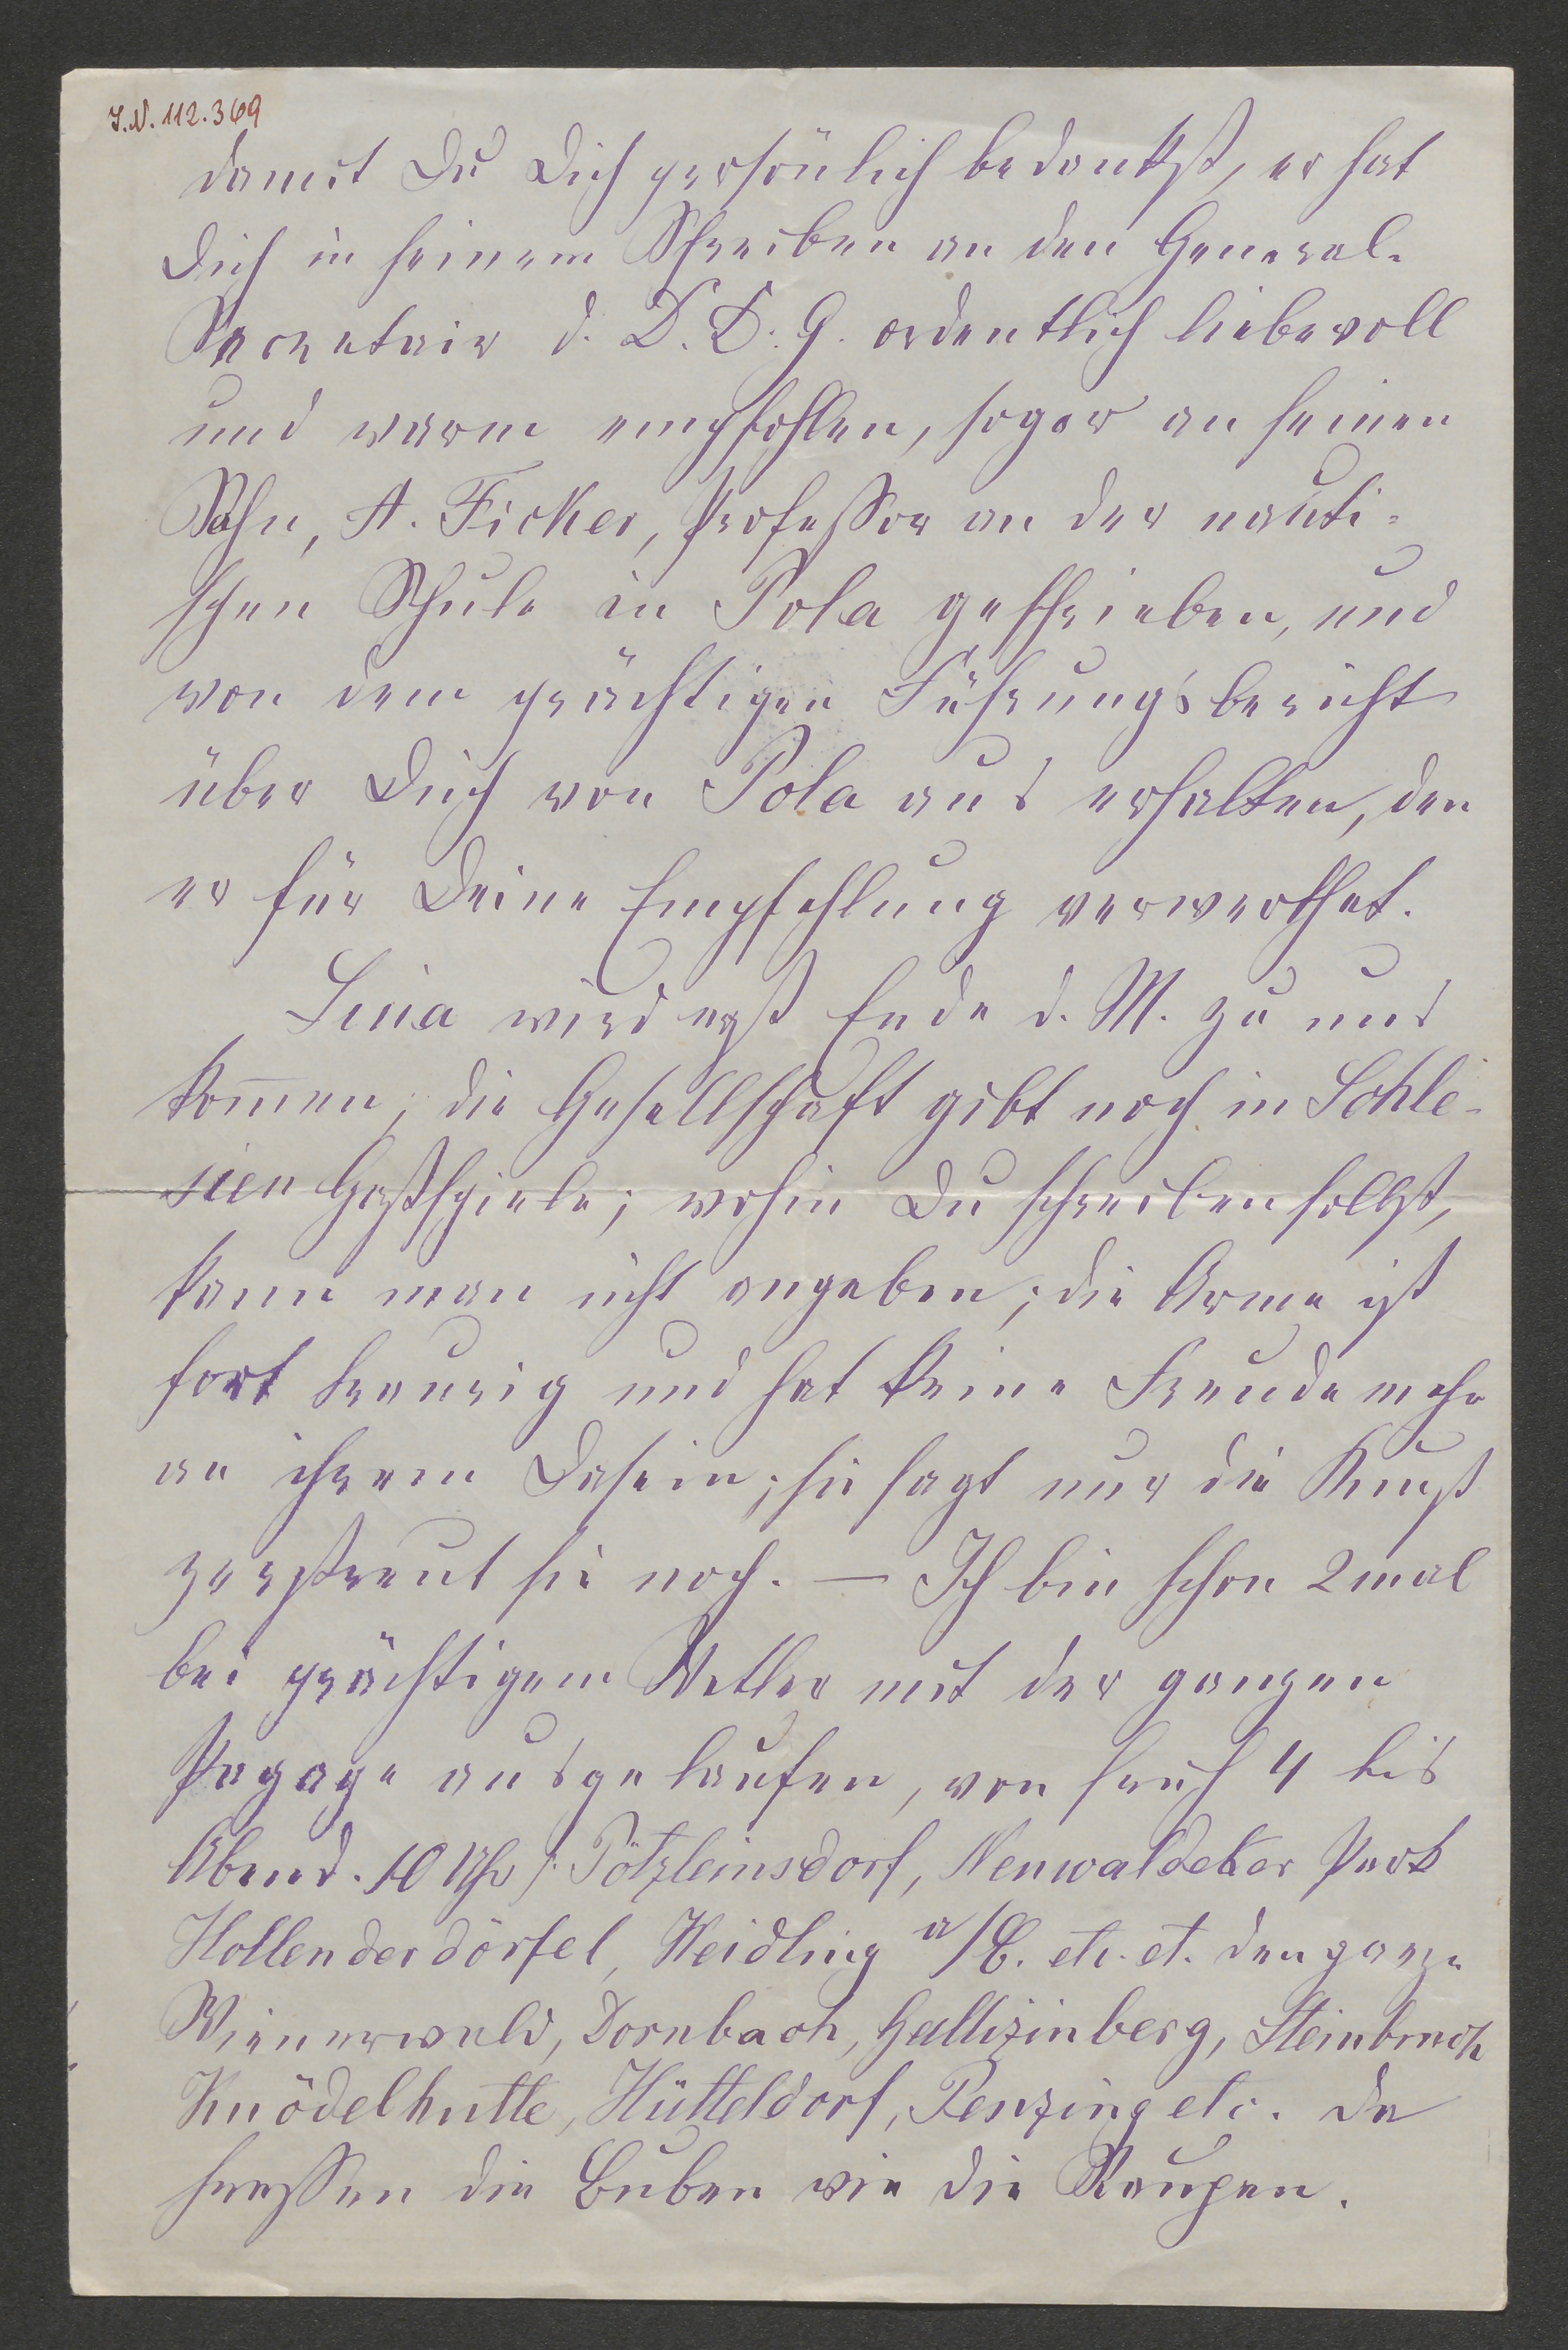 I.N. 112.369
damit Du Dich persönlich bedankst, er hat
Dich in seinem Schreiben an den General-
Secretair d. D. D. G. ordentlich liebevoll
und warm empfohlen, sogar an seinen
Sohn, A. Ficker, Professor an der nauti-
schen Schule in Pola geschrieben, und
von dem prächtigen Führungsbericht
über Dich von Pola aus erhalten, den
er für Deine Empfehlung verwerthet.
Lina wird erst Ende d. M. zu uns
kom̅en, die Gesellschaft gibt noch in Schle-
sien Gastspiele; wohin Du schreiben sollst,
kann man nicht angeben; die Arme ist
fort traurig und hat keine Freude mehr
an ihrem Dasein; sie sagt nur die Kunst
zerstreut sie noch. — Ich bin schon 2 mal
bei prächtigem Wetter mit der ganzen
Pagage ausgelaufen, von früh 4 bis
Abend. 10 Uhr /: Pötzleinsdorf, Neuwaldeker Park
Hollenderdörfel, Weidling a/B. etc. et. den ganze
Wienerwald, Dornbach, Gallizinberg, Steinbruch
Knödelhutte, Hütteldorf, Penzing etc. da
fressen die Buben wie die Raupen.